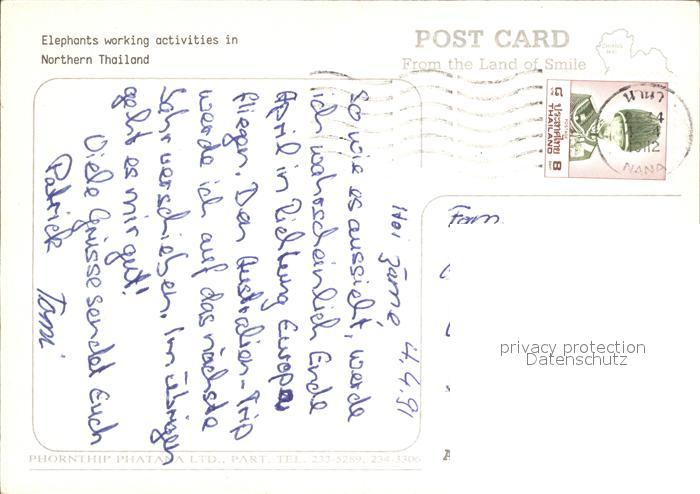 Elephants working activities in
Northern Thailand
POST CARD
From the Land of Smile
CHIANG MAI
ประเทศไทย
THAILAND
8
4
NANA
Hoi zäme 4.4.91
So wie es aussieht, werde
ich wahrscheinlich Ende
April in Richtung Europa
fliegen. Den Australien-Trip
werde ich auf das nächste
Jahr verschieben. Im übrigen
geht es mir gut!
Viele Grüsse sendet Euch
Patrick Tomi
Fam.
privacy protection
Datenschutz
PHORNTHIP PHATANA LTD., PART. TEL. 233-5289, 234-3306